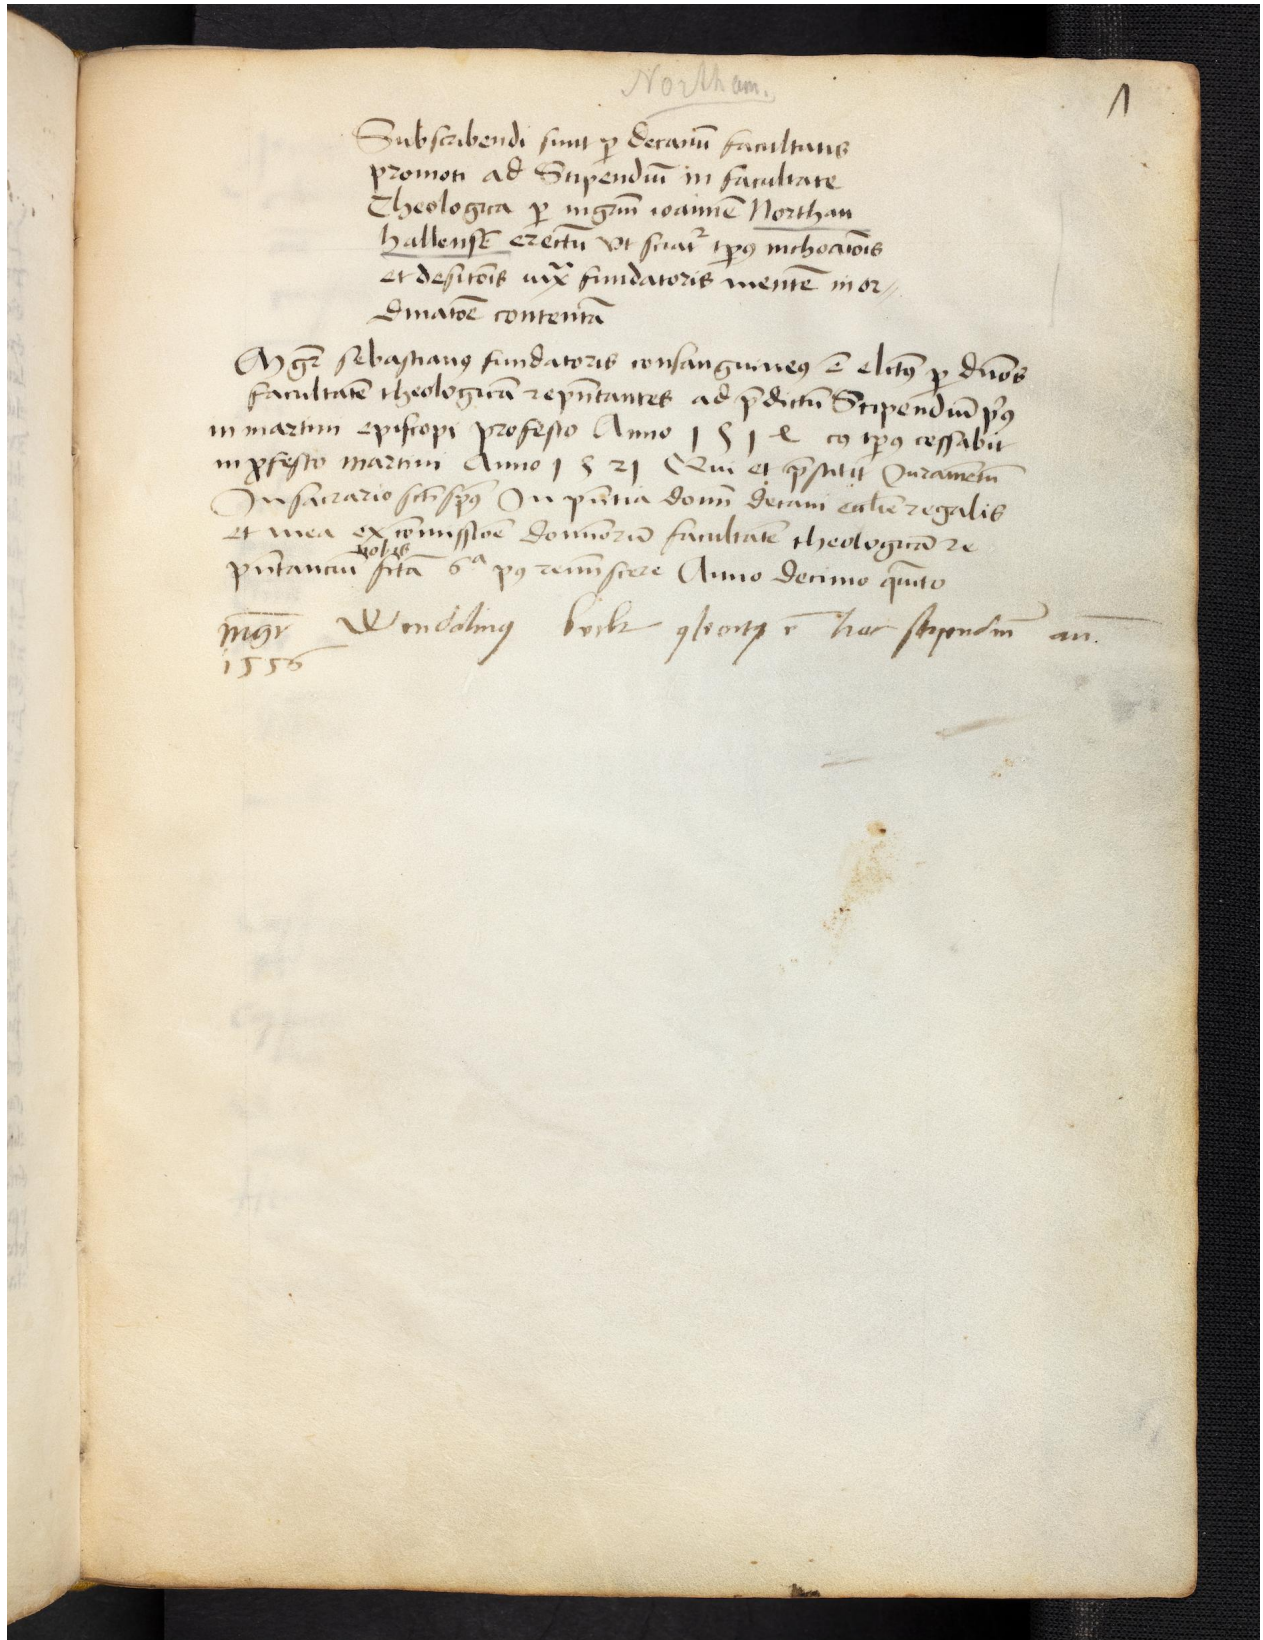 Northam.
1
Subscribendi sunt ꝑ decanū facultatis
promoti ad Stipendiū in facultate
Theologica ꝑ mgrm̄ ioannē Northan
hallensē erectū vt sciat᷑ tp̄ꝯ inchoatiōis
et desitiōis iux̄ fundatoris mentē in or⸗
dinatiōe contentā
Mgr̄ sebastianꝯ fundatoris consanguineꝯ ē elctꝯ ꝑ dn̄os
facultatē theologicā rep̄ntantes ad p̄dictū Stipendiū
in martini episcopi profesto Anno 151 cꝯ tp̄ꝯ cessabit
in ꝓfesto martini Anno 1521 Qui et p̄stitit Iuramētū
In sacrario In pn̄tia domī decani eccl̄ie regalis
et mea ex cōmissiōe dominorū facultatē theologicā re
pn̄tanciū nobis fctā 6ᵃ pꝯ remīscere Anno decimo quīto
mgr̄ Wendalinꝯ stipendiū an.
1556